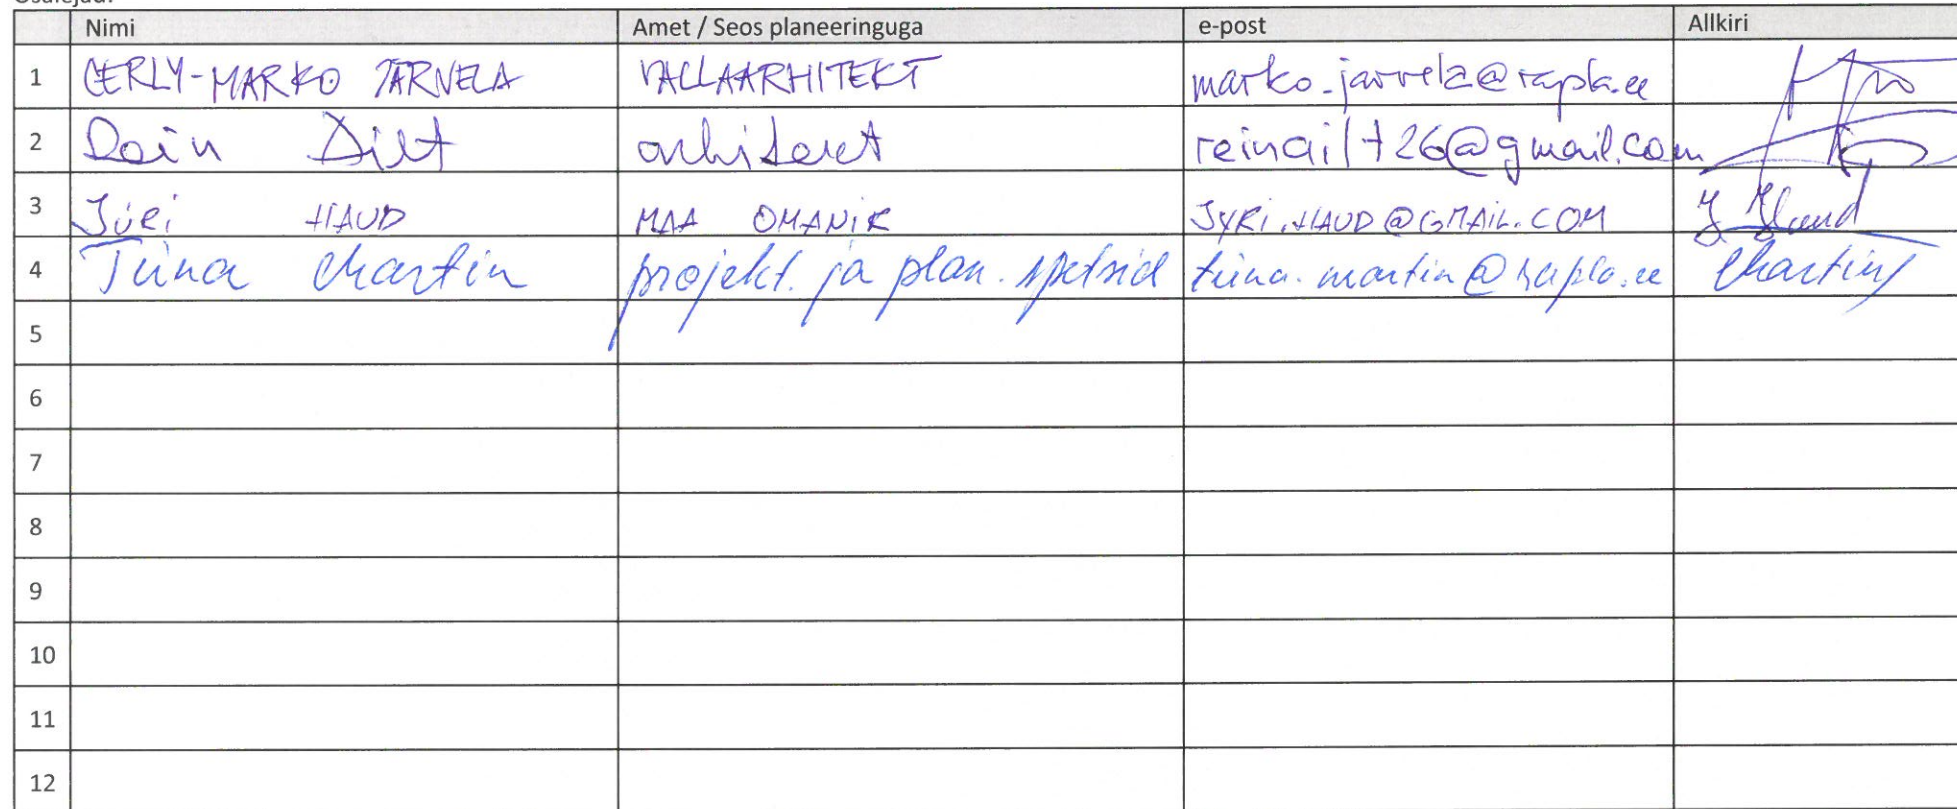 Osalejad:
Nimi Amet / Seos planeeringuga e-post Allkiri
1 CERLY-MARKO JÄRVELA VALLAARHITEKT marko.jarvela@rapla.ee
2 Rein Ailt arhitekt reinailt26@gmail.com
3 Jüri HAUD MAA OMANIK JYRI.HAUD@GMAIL.COM J Haud
4 Tiina Martin projekt. ja plan. spetsial tiina.martin@rapla.ee Martin
5
6
7
8
9
10
11
12